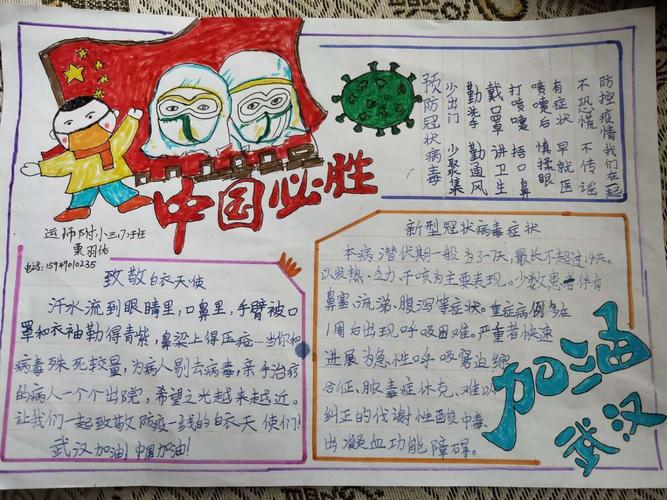 中国必胜
预防冠状病毒
少出门 少聚集
勤洗手 勤通风
戴口罩 讲卫生
打喷嚏 捂口鼻
喷嚏后 慎揉眼
有症状 早就医
不恐慌 不传谣
防控疫情我们在一起
运师附小三(7)班
电话：15949010235
致敬白衣天使
汗水流到眼睛里，口鼻里，手臂被口
罩和衣袖勒得青紫，鼻梁上得压疮…当你和
病毒殊死较量，为病人剔去病毒，亲手治疗
的病人一个个出院，希望之光越来越近。
让我们一起致敬防疫一线的白衣天使们！
武汉加油！中国加油！
新型冠状病毒症状
本病潜伏期一般为3-7天，最长不超过14天。
以发热、乏力、干咳为主要表现。少数患者伴有
鼻塞、流涕、腹泻等症状。重症病例多在
1周后出现呼吸困难。严重者快速
进展为急性呼吸窘迫综
合征、脓毒症休克、难以
纠正的代谢性酸中毒
出凝血功能障碍。
加油
武汉